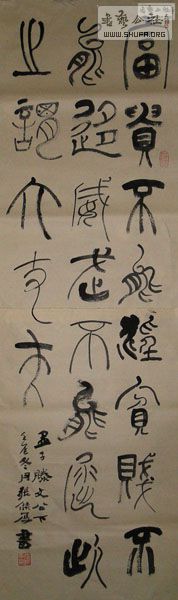 書藝公社
WWW.SHUFA.ORG
富貴不能淫貧賤不
能移威武不能屈此
之謂大丈夫
孟子滕文公下
冬月
書